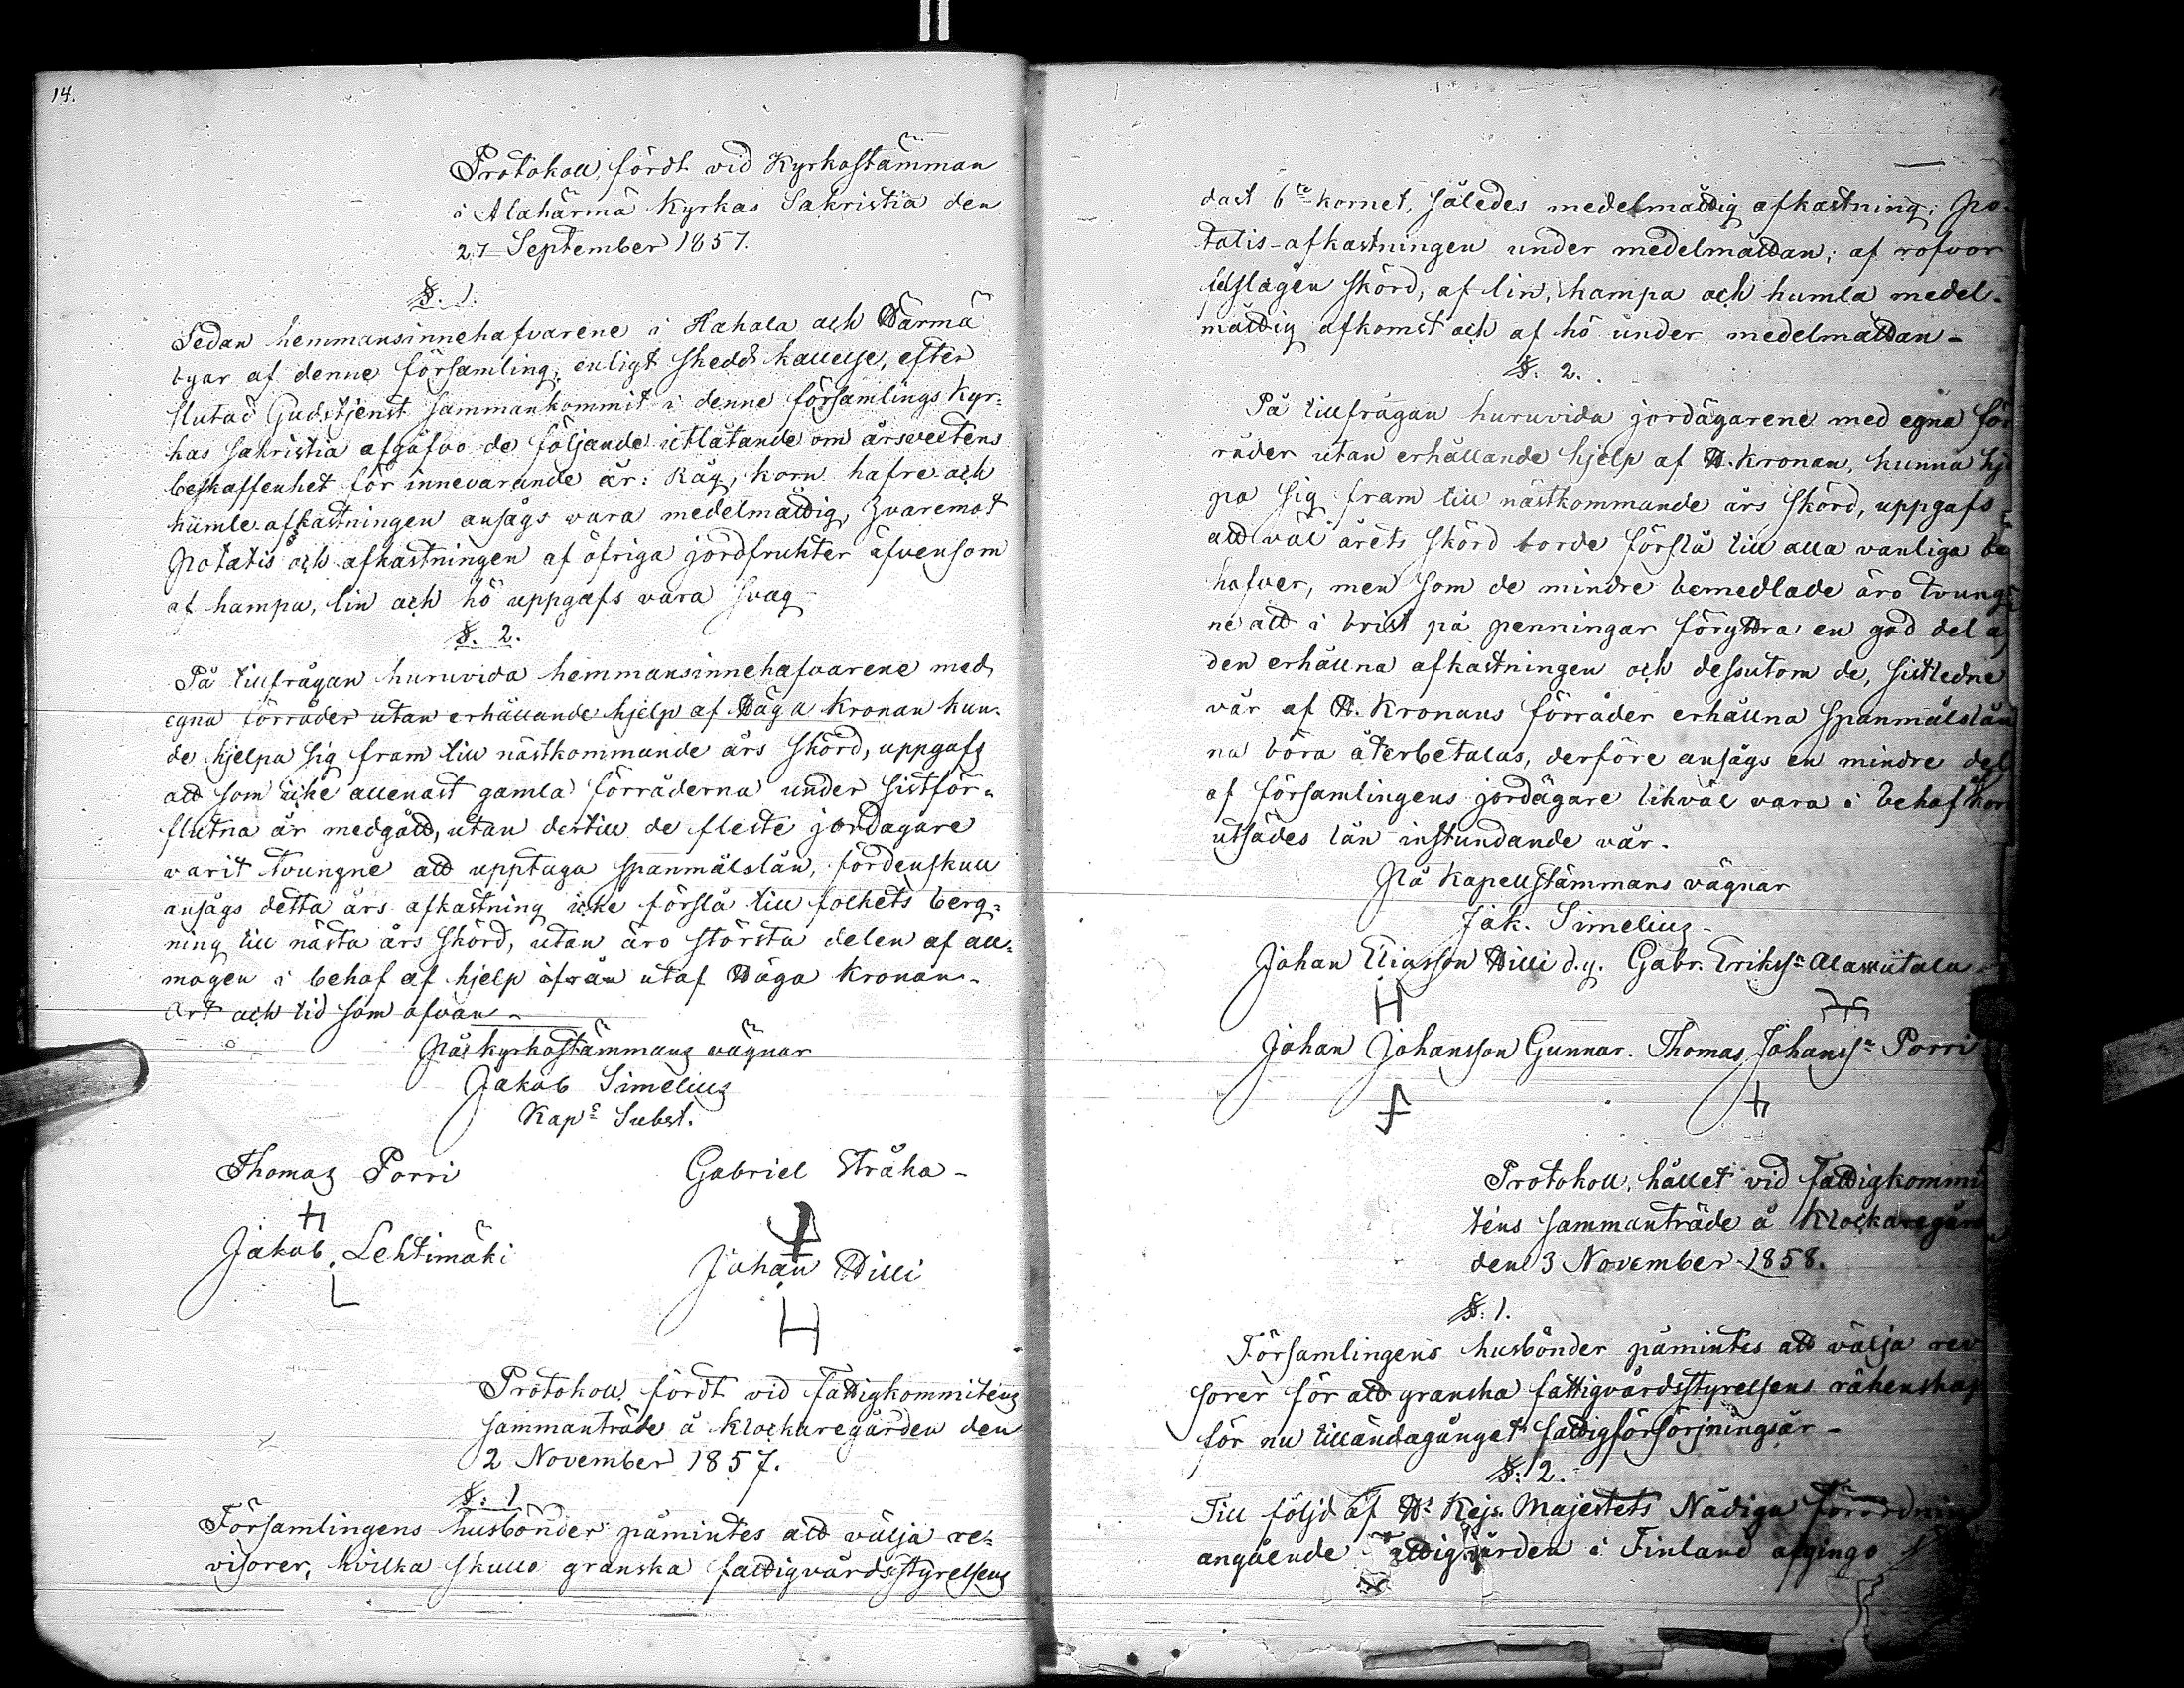 14.
Protokoll, fördt vid Kyrkostämman
i Alahärmä Kyrkas Sakristia den
27 September 1857.
§. 1.
Sedan hemmansinnehafvarene i Hakala och Härmä
byar af denne församling, enligt skedd kallelse, efter
slutad Gudstjenst sammankommit i denne församlings Kyr-
kas sakristia afgåfvo de följande utlåtande om årsvextens
beskaffenhet för innevarande år: Råg, korn hafre och
humle afkastningen ansågs vara medelmåttig, hvaremot
Potatis och afkastningen af öfriga jordfrukter äfvensom
af hampa, lin och hö uppgafs vara svag
§. 2.
På tillfrågan huruvida hemmansinnehafvarene med
egna förråder utan erhållande hjelp af Höga Kronan kun-
de hjelpa sig fram till nästkommande års skörd, uppgafs
att som icke allenast gamla förråderna under sistför-
flutna år medgått, utan dertill de fleste jordägare
varit tvungne att upptaga spanmålslån, fördenskull
ansågs detta års afkastning icke förslå till folkets berg-
ning till nästa års skörd, utan äro största delen af all-
mogen i behof af hjelp ifrån utaf Höga Kronan.
Ort och tid som ofvan
På kyrkostämmans vägnar
Jakob Simelius
Kap: Subst.
Thomas Porri Gabriel Stråka
Jakob Lehtimäki Johan Hilli
L H
Protokoll, fördt vid Fattigkommiténs
sammanträde å Klockaregården den
2 November 1857.
§: 1
Församlingens husbönder påmintes att välja re-
visorer, hvilka skulle granska fattigvårdsstyrelsens
dast 6te kornet, således medelmåttig afkastning; Po-
tatis-afkastningen under medelmåttan; af rofvor
felslagen skörd, af lin, hampa och humla medel-
måttig afkomst och af hö under medelmåttan
§. 2.
På tillfrågan huruvida jordägarene med egna för
råder utan erhållande hjelp af H. Kronan, kunna hjel
pa sig fram till nästkommande års skörd, uppgafs
att väl årets skörd borde förslå till alla vanliga be
hofver, men som de mindre bemedlade äro tvung
ne att i brist på penningar föryttra en god del af
den erhållna afkastningen och dessutom de, sistledne
vår af H. Kronans förråder erhållna spanmålslån
na böra återbetalas, derföre ansågs en mindre del
af församlingens jordägare likväl vara i behof Korn
utsädes lån instundande vår.
På Kapellstämmans vägnar
Jak. Simelius
Johan Eliasson Hilli d.y. Gabr. Erikss:n Alawiitala
H
Johan Johansson Gunnar. Thomas Johanss:n Porri
Protokoll, hållet vid Fattigkommi
téns sammanträde å Klockaregård
den 3 November 1858.
§: 1.
Församlingens husbönder påmintes att välja rev
sorer för att granska fattigvårdsstyrelsens räkenskap
för nu tilländagånget fattigförsörjningsår
§: 2.
Till följd af H:s Kejs. Majestets Nådiga Förordnin
angående fattigvården i Finland afgingo